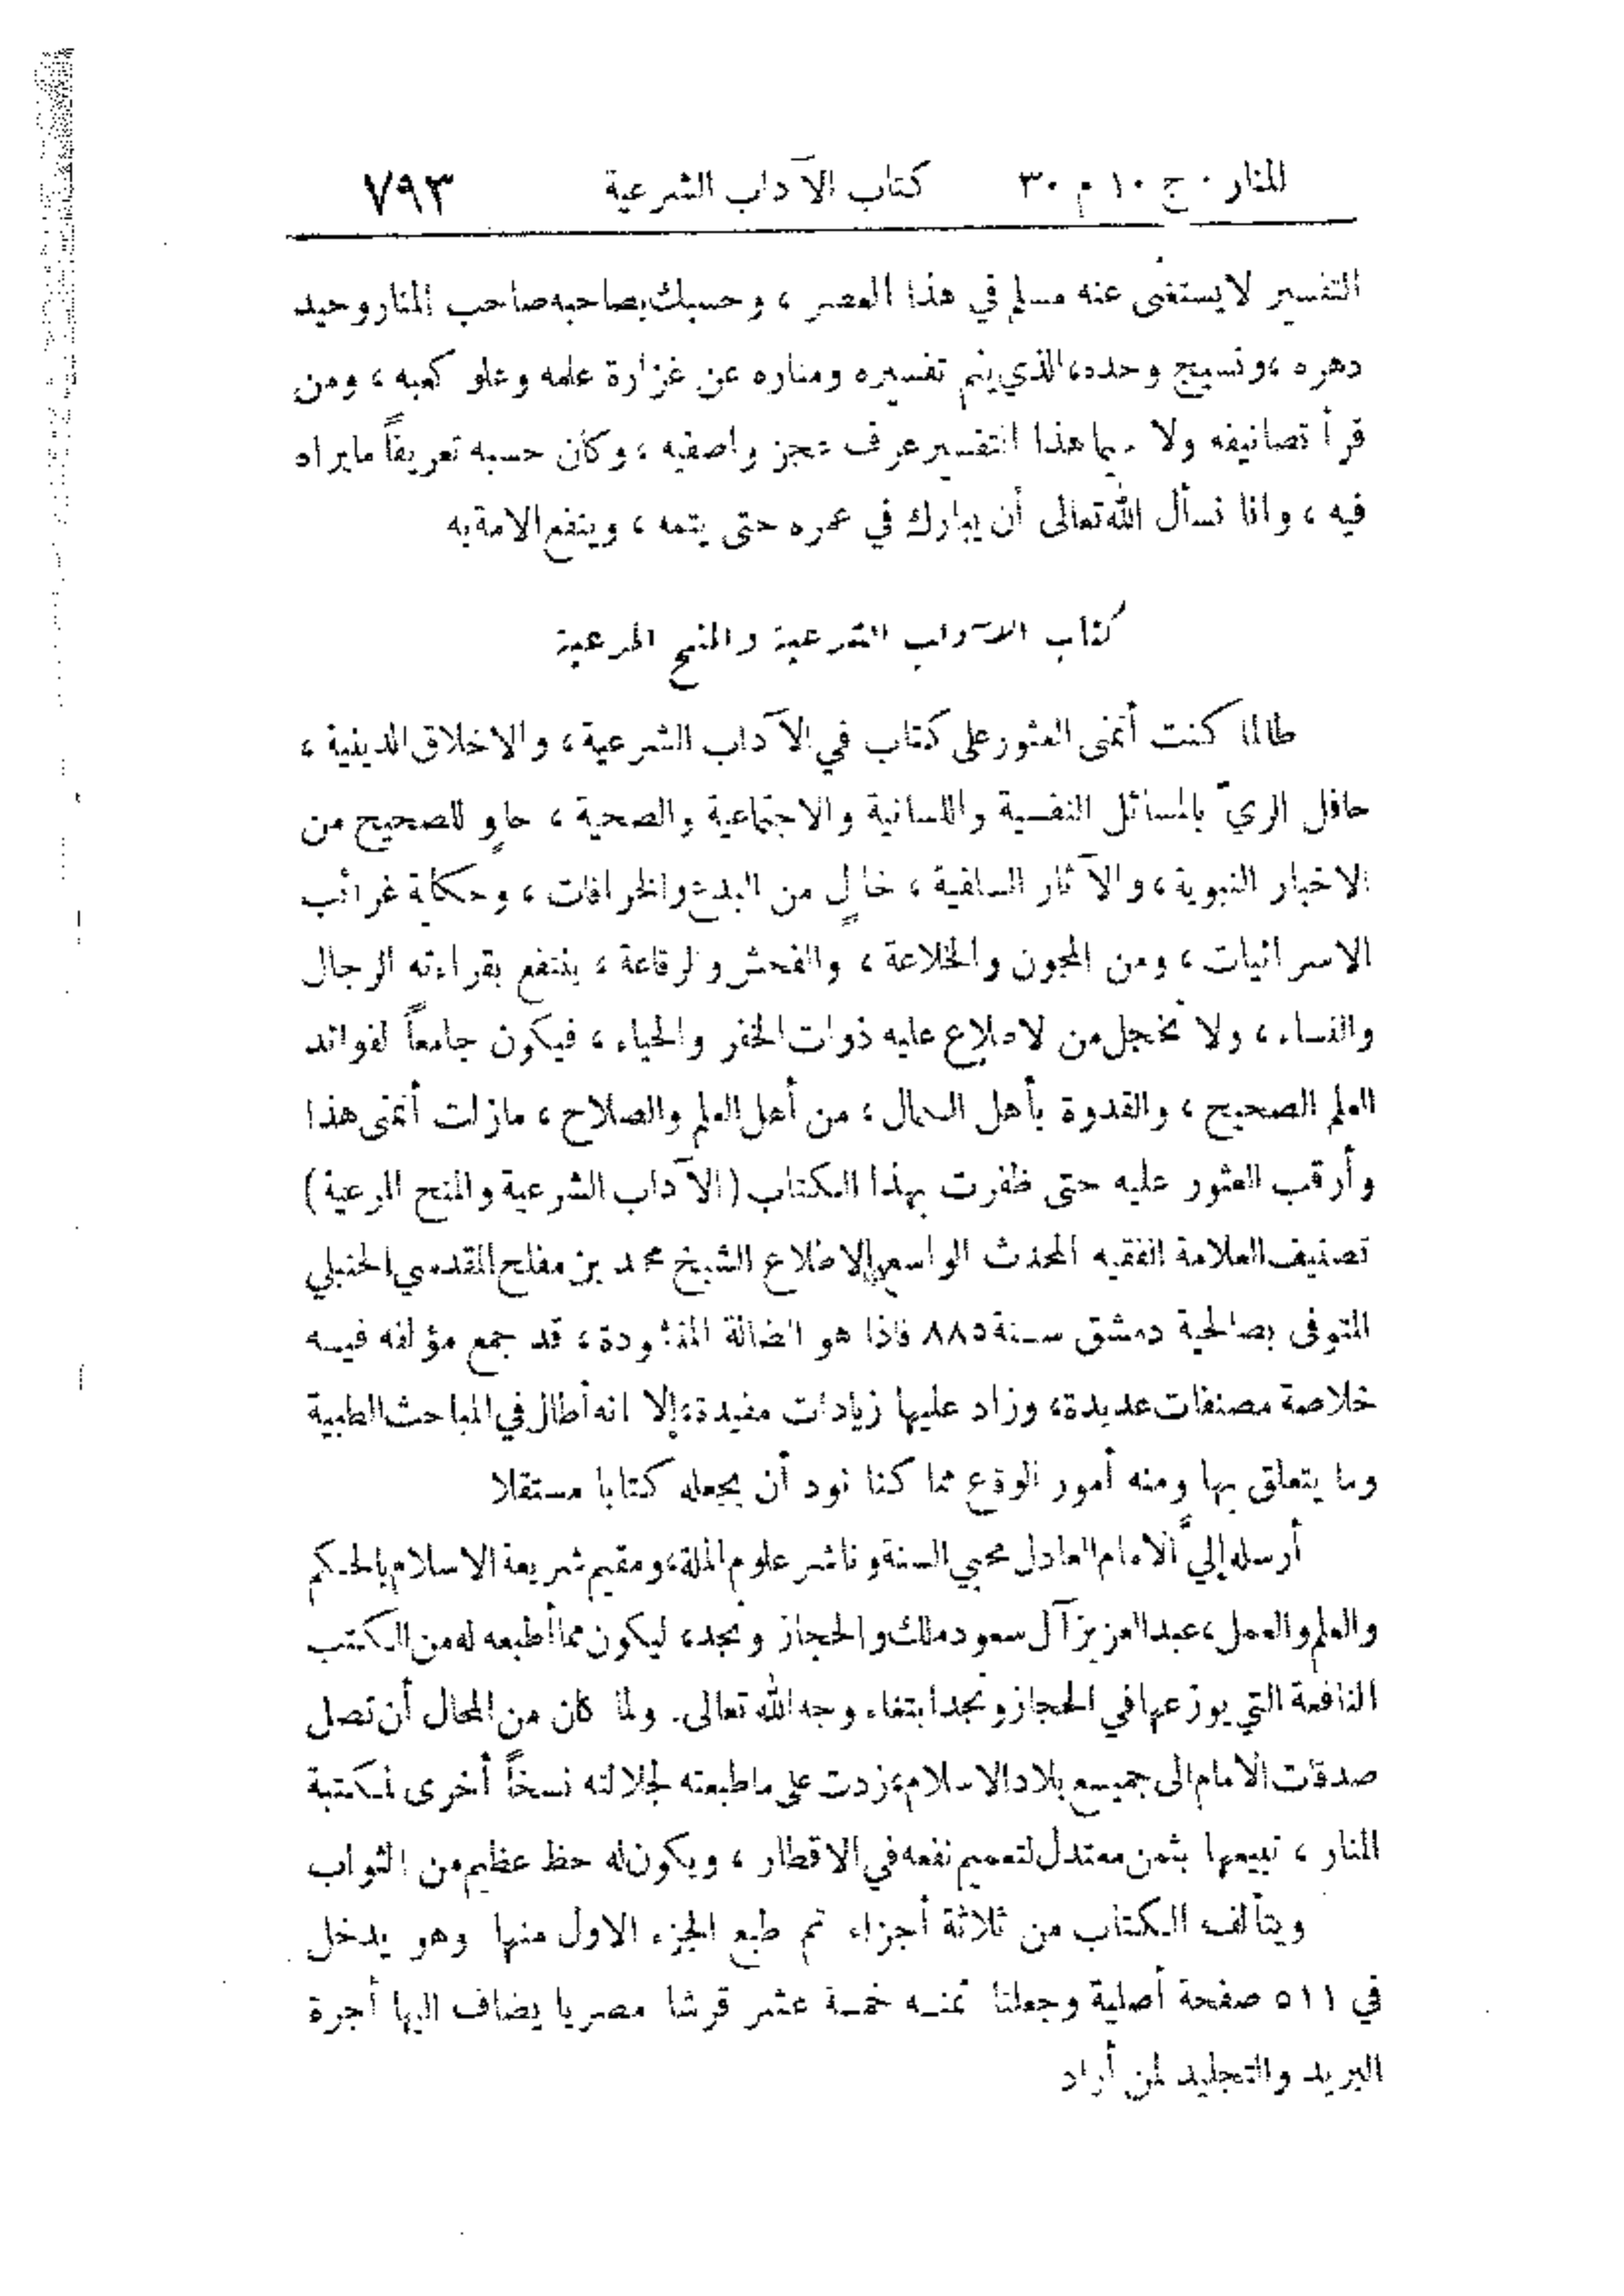 المنار : ج ١٠ م ٣٠ كتاب الآداب الشرعية ٧٩٣
التفسير لا يستغنى عنه مسلم في هذا العصر ، وحسبك بصاحبه صاحب المنار وحيد
دهره ، ونسيج وحده، الذي ينم تفسيره ومناره عن غزارة علمه وعلو كعبه ، ومن
قرأ تصانيفه ولا سيما هذا التفسير عرف عجز واصفيه ، وكان حسبه تعريفاً ما يراه
فيه ، وانا نسأل الله تعالى أن يبارك في عمره حتى يتمه ، وينفع الامة به
كتاب الآداب الشرعية والمنح المرعية
طالما كنت أتمنى العثور على كتاب في الآداب الشرعية ، والاخلاق الدينية ،
حافل الريّ بالمسائل النفسية واللسانية والاجتماعية والصحية ، حاوٍ للصحيح من
الاخبار النبوية ، والآثار السلفية ، خالٍ من البدع والخرافات ، وحكاية غرائب
الاسرائيات ، ومن المجون والخلاعة ، والفحش والرقاعة ، ينتفع بقراءته الرجال
والنساء ، ولا تخجل من لاطلاع عليه ذوات الخفر والحياء ، فيكون جامعاً لفوائد
العلم الصحيح ، والقدوة بأهل الكمال ، من أهل العلم والصلاح ، مازلت أتمنى هذا
وأرقب العثور عليه حتى ظفرت بهذا الكتاب (الآداب الشرعية والمنح المرعية)
تصنيف العلامة الفقيه المحدث الواسع الاطلاع الشيخ محمد بن مفلح المقدسي الحنبلي
المتوفى بصالحية دمشق سنة ٨٨٥ فاذا هو الضالة المنشودة ، قد جمع مؤلفه فيه
خلاصة مصنفات عديدة ، وزاد عليها زيادات مفيدة ، إلا انه أطال في المباحث الطبية
وما يتعلق بها ومنه أمور الوقاع مما كنا نود أن يجعله كتابا مستقلا
أرسله إليَّ الامام العادل محيي السنة وناشر علوم الملة ، ومقيم شريعة الاسلام بالحكم
والعلم والعمل ، عبد العزيز آل سعود ملك والحجاز ونجد ، ليكون مما أطبعه له من الكتب
النافعة التي يوزعها في الحجاز ونجد ابتغاء وجه الله تعالى. ولما كان من المحال أن تصل
صدقات الامام الى جميع بلاد الاسلام ، زدت على ماطبعته لجلالته نسخاً أخرى لمكتبة
المنار ، تبيعها بثمن معتدل لتعميم نفعه في الاقطار ، ويكون له حظ عظيم من الثواب
ويتألف الكتاب من ثلاثة أجزاء تم طبع الجزء الاول منها وهو يدخل
في ٥١١ صفحة أصلية وجعلنا ثمنه خمسة عشر قرشا مصريا يضاف اليها أجرة
البريد والتجليد لمن أراد